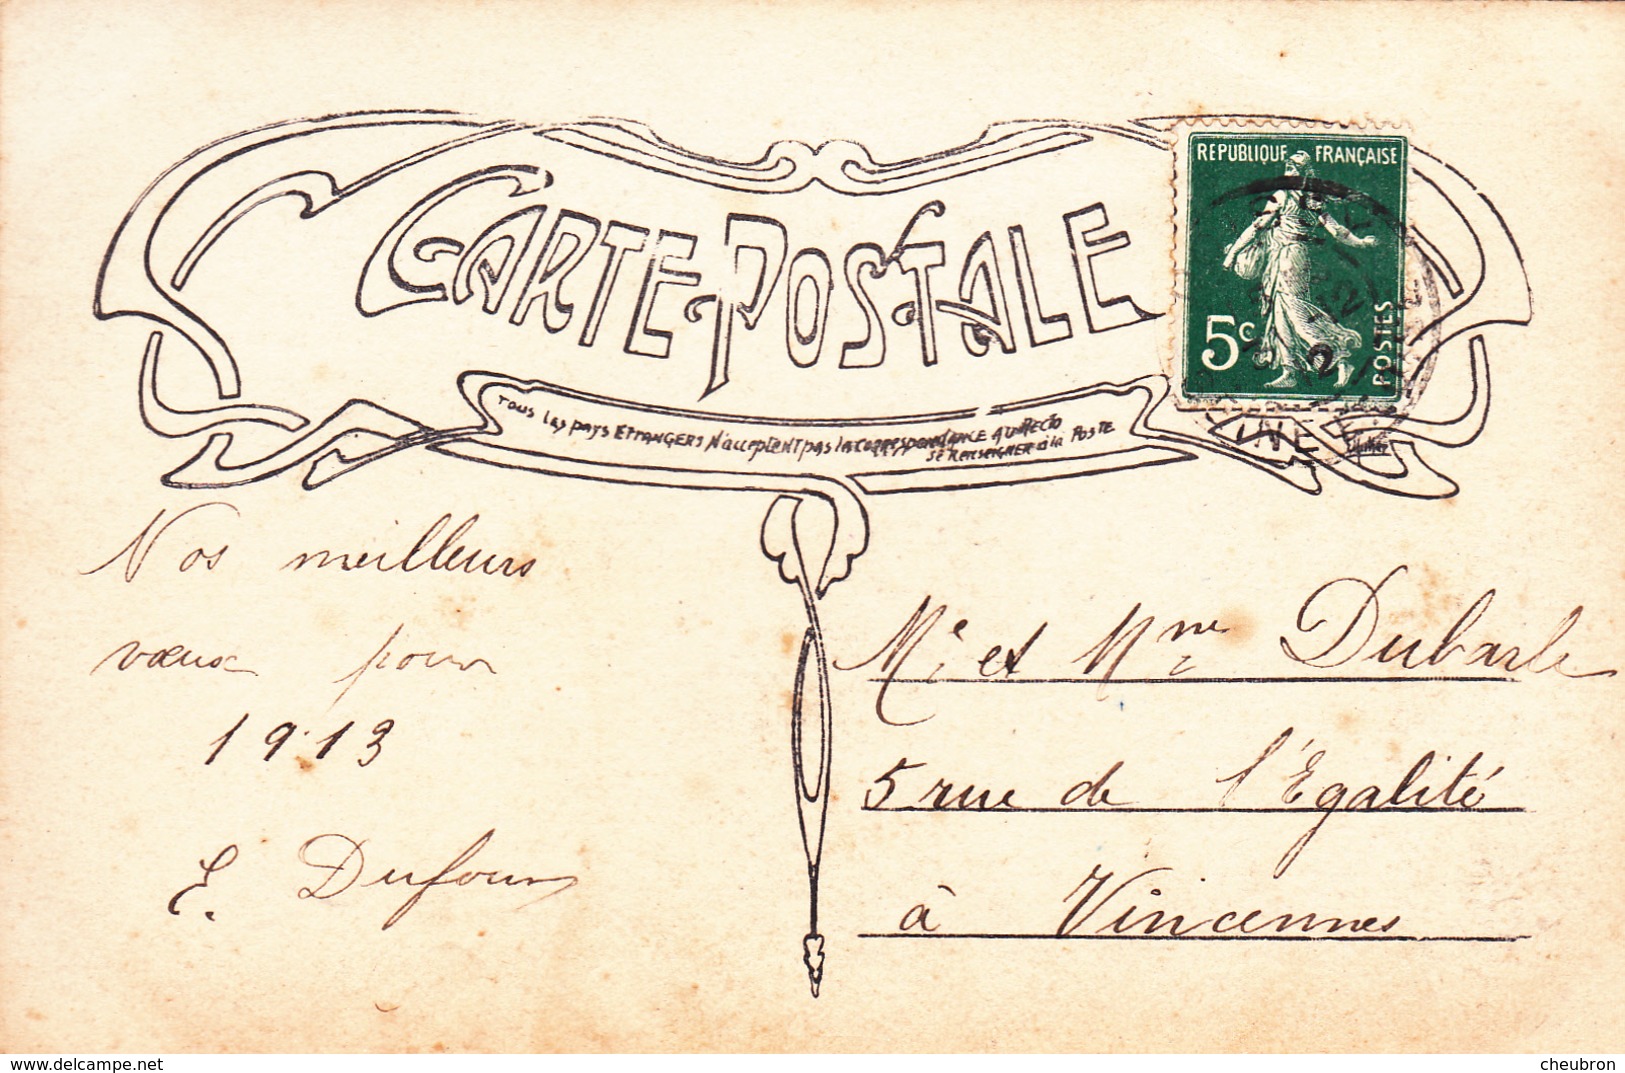 CARTE POSTALE
REPUBLIQUE FRANÇAISE
5c
POSTES
Tous Les pays ETRANGERS N'acceptent pas la CORRESPONDANCE AU RECTO
SE RENSEIGNER à la POSTE
Nos meilleurs
vœux pour
1913
E. Dufour
Mr. et Mme Dubarle
5 rue de l'Egalité
à Vincennes
delcampe.net
cheubron